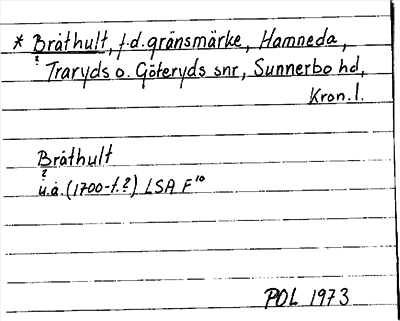 * Bråthult, f.d. gränsmärke, Hamneda,
? Traryds o. Göteryds snr, Sunnerbo hd,
Kron. l.
Bråthult
?
u.å. (1700-t.?) LSA F¹⁰
POL 1973